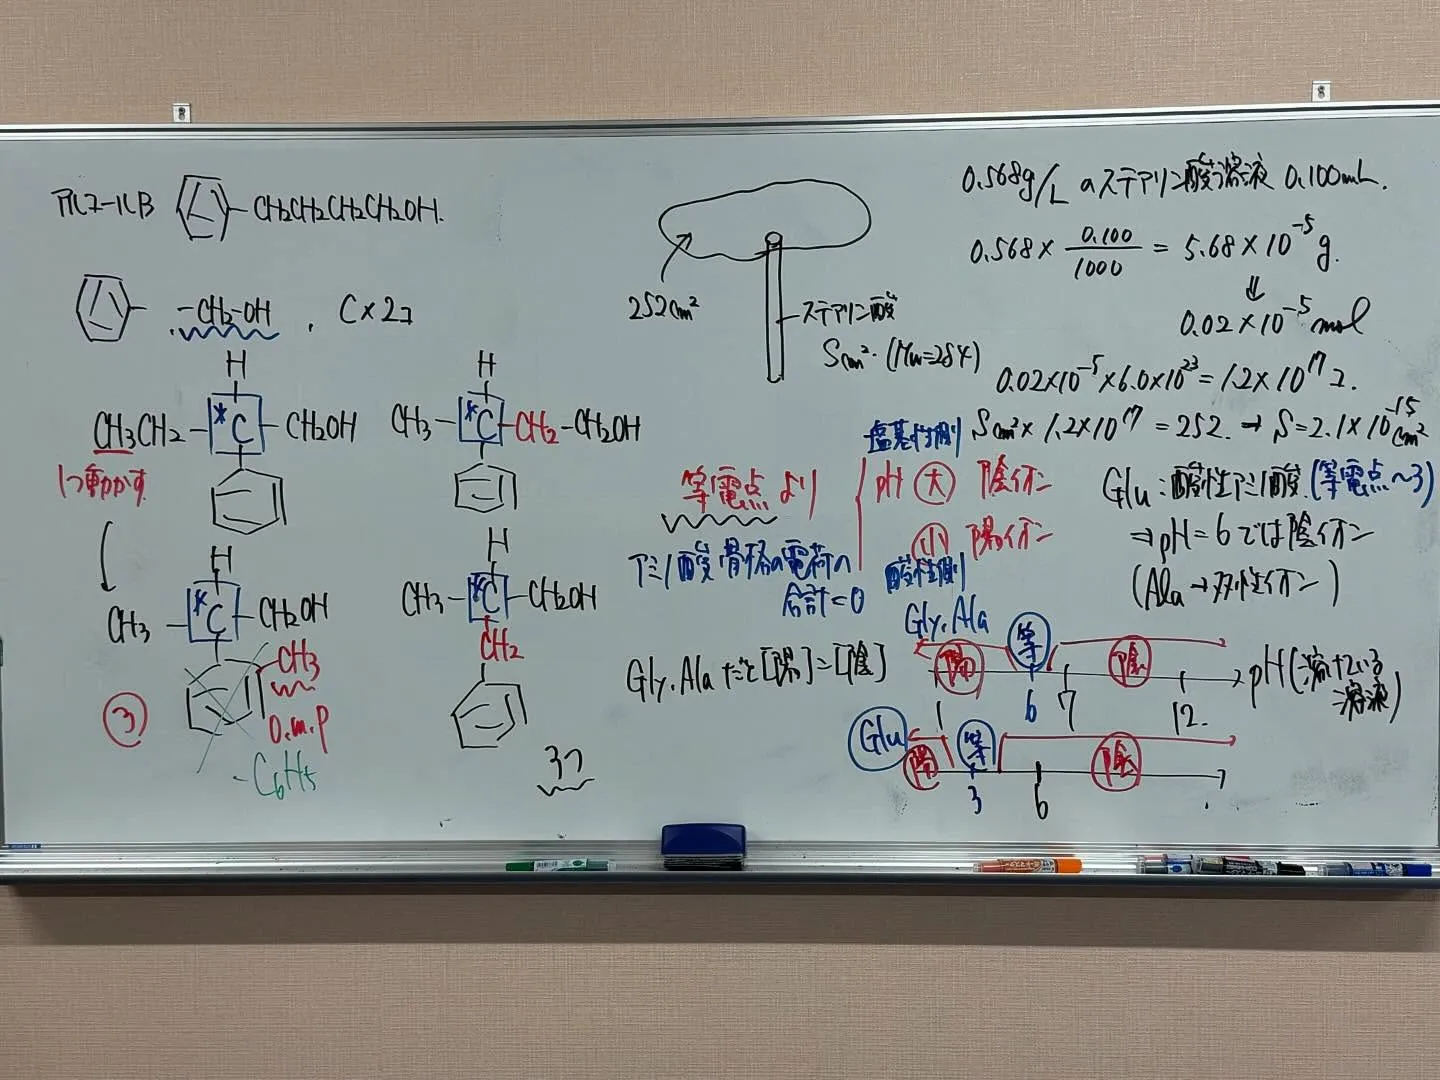 アルコールB
CH2CH2CH2CH2OH.
-CH2-OH , C×2コ
H
CH3CH2 - *C - CH2OH
1つ動かす
H
CH3 - *C - CH2 - CH2OH
H
CH3 - *C - CH2OH
CH3
o.m.p
③
-C6H5
H
CH3 - *C - CH2OH
CH2
3つ
252cm²
ステアリン酸
Scm². (Mw=284)
0.568g/L のステアリン酸溶液 0.100mL.
0.568 × 0.100/1000 = 5.68×10⁻⁵g.
⇓
0.02×10⁻⁵mol
0.02×10⁻⁵×6.0×10²³=1.2×10¹⁷コ.
Scm²×1.2×10¹⁷=252. → S=2.1×10⁻¹⁵cm²
等電点より
塩基性側
pH 大 陰イオン
小 陽イオン
酸性側
アミノ酸骨格の電荷の
合計=0
Glu:酸性アミノ酸.(等電点~3)
⇒pH=6では陰イオン
(Ala→双性イオン)
Gly.Alaだと[陽]=[陰]
Gly.Ala
陽 等 陰
1 6 7 12.
pH(溶けている
溶液)
Glu
陽 等 陰
3 6